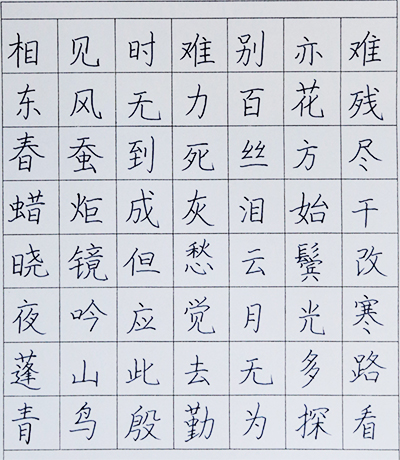 相见时难别亦难
东风无力百花残
春蚕到死丝方尽
蜡炬成灰泪始干
晓镜但愁云鬓改
夜吟应觉月光寒
蓬山此去无多路
青鸟殷勤为探看